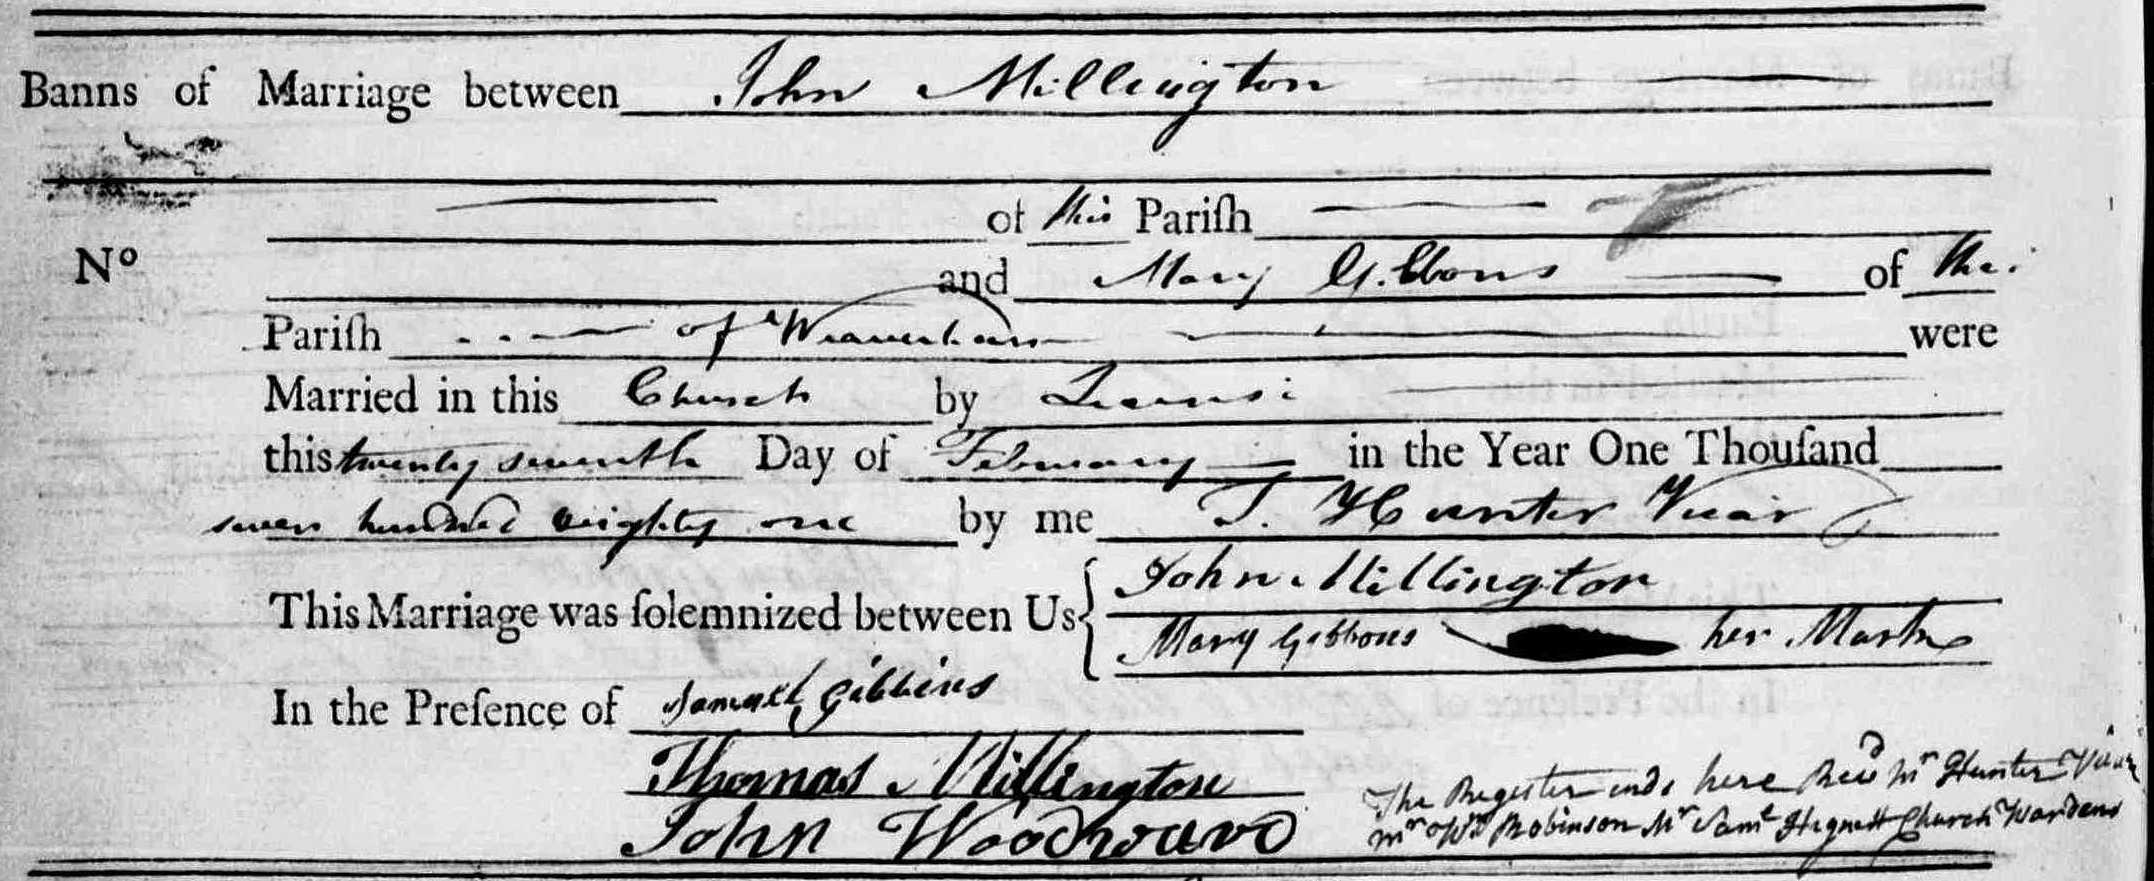 Banns of Marriage between John Millington
of this Pariſh
Nº
and Mary Gibbons of the
Pariſh of Weaverham were
Married in this Church by Licens:
this twenty seventh Day of February in the Year One Thouſand
seven hundred eighty one by me T. Hunter Vicar
This Marriage was ſolemnized between Us { John Millington
Mary Gibbons her Mark
In the Preſence of Samuell Gibbins
Thomas Millington
John Woodward
The Register ends here Revd Mr Hunter Vicar
Mr Wm Robinson Mr Saml Hignett Church Wardens